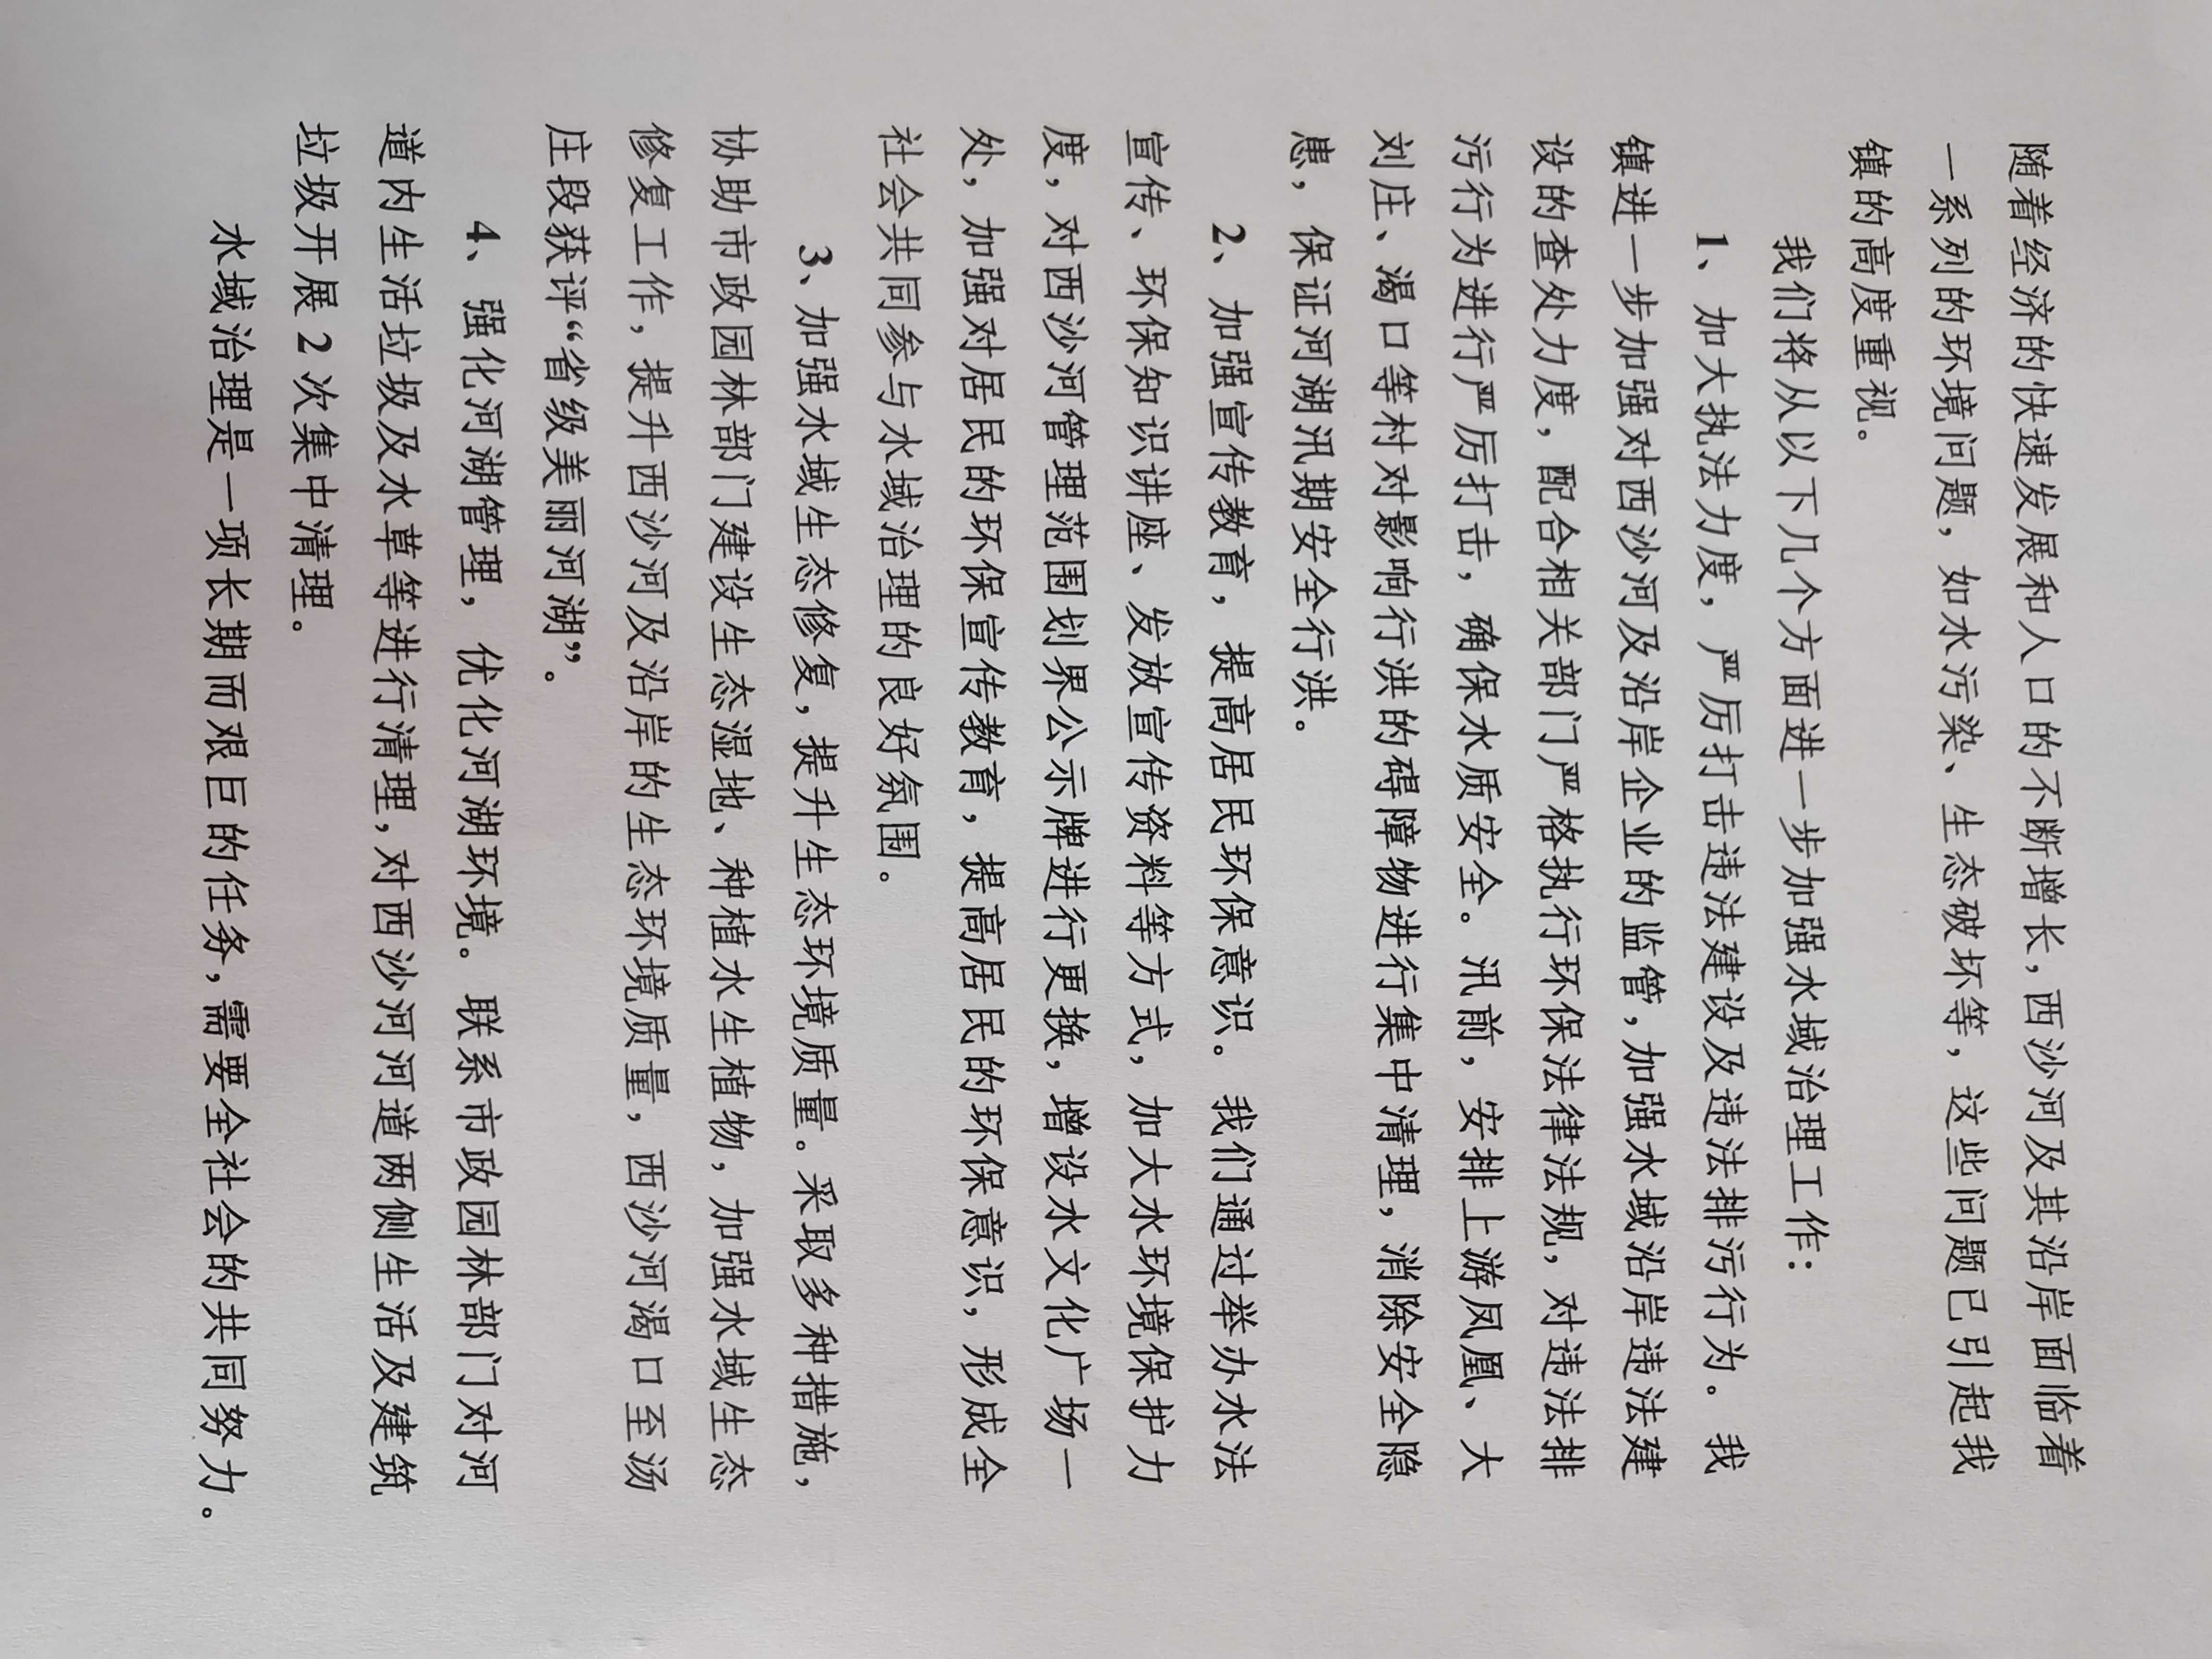 随着经济的快速发展和人口的不断增长，西沙河及其沿岸面临着
一系列的环境问题，如水污染、生态破坏等，这些问题已引起我
镇的高度重视。
我们将从以下几个方面进一步加强水域治理工作：
1、加大执法力度，严厉打击违法建设及违法排污行为。我
镇进一步加强对西沙河及沿岸企业的监管，加强水域沿岸违法建
设的查处力度，配合相关部门严格执行环保法律法规，对违法排
污行为进行严厉打击，确保水质安全。汛前，安排上游凤凰、大
刘庄、渴口等村对影响行洪的碍障物进行集中清理，消除安全隐
患，保证河湖汛期安全行洪。
2、加强宣传教育，提高居民环保意识。我们通过举办水法
宣传、环保知识讲座、发放宣传资料等方式，加大水环境保护力
度，对西沙河管理范围划界公示牌进行更换，增设水文化广场一
处，加强对居民的环保宣传教育，提高居民的环保意识，形成全
社会共同参与水域治理的良好氛围。
3、加强水域生态修复，提升生态环境质量。采取多种措施，
协助市政园林部门建设生态湿地、种植水生植物，加强水域生态
修复工作，提升西沙河及沿岸的生态环境质量，西沙河渴口至汤
庄段获评“省级美丽河湖”。
4、强化河湖管理，优化河湖环境。联系市政园林部门对河
道内生活垃圾及水草等进行清理，对西沙河河道两侧生活及建筑
垃圾开展 2 次集中清理。
水域治理是一项长期而艰巨的任务，需要全社会的共同努力。